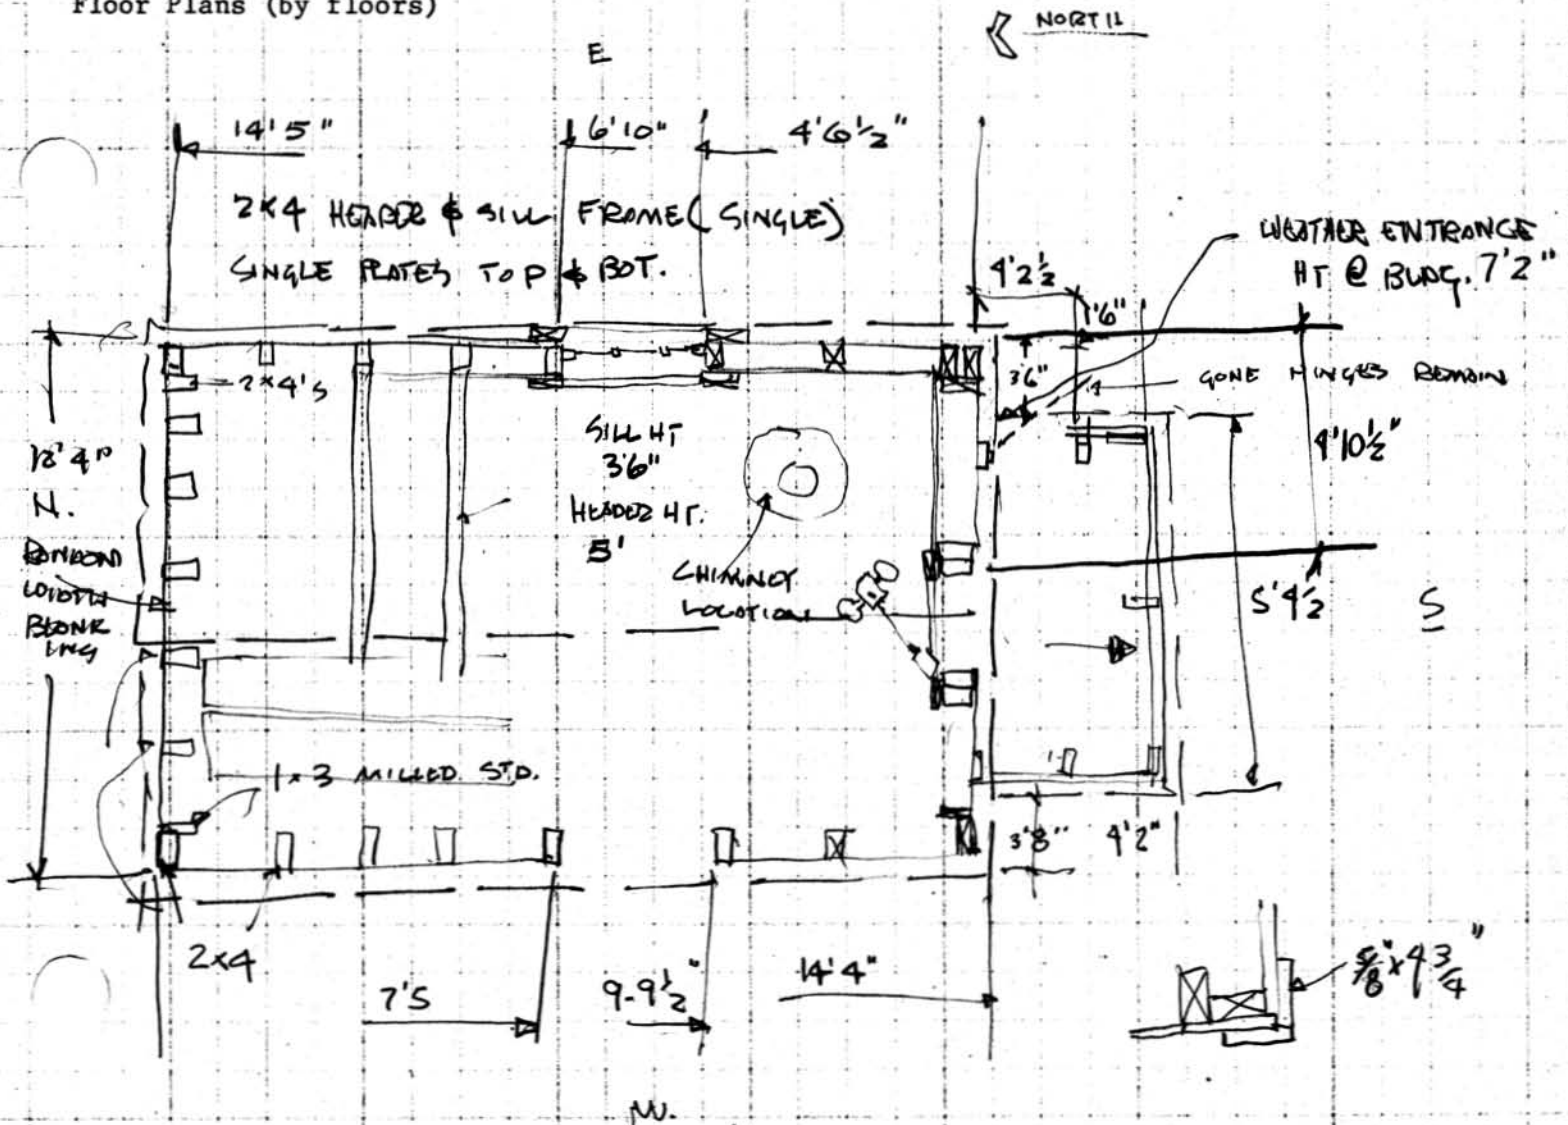 Floor Plans (by floors)
NORTH
E
14'5"
6'10"
4'6 1/2"
2x4 HEADER & SILL FRAME (SINGLE)
SINGLE PLATES TOP & BOT.
WEATHER ENTRANCE
HT @ BLDG. 7'2"
4'2 1/2
1'6"
3'6"
GONE HINGES REMAIN
2x4's
12'4"
N.
SILL HT
3'6"
HEADER HT.
5'
4'10 1/2"
RANDOM
WIDTH
PLANK
ING
CHIMNEY
LOCATION
5'4 1/2
S
1x3 MILLED STD.
3'8"
4'2"
2x4
7'5
9-9 1/2"
14'4"
5/8" x 4 3/4"
W.